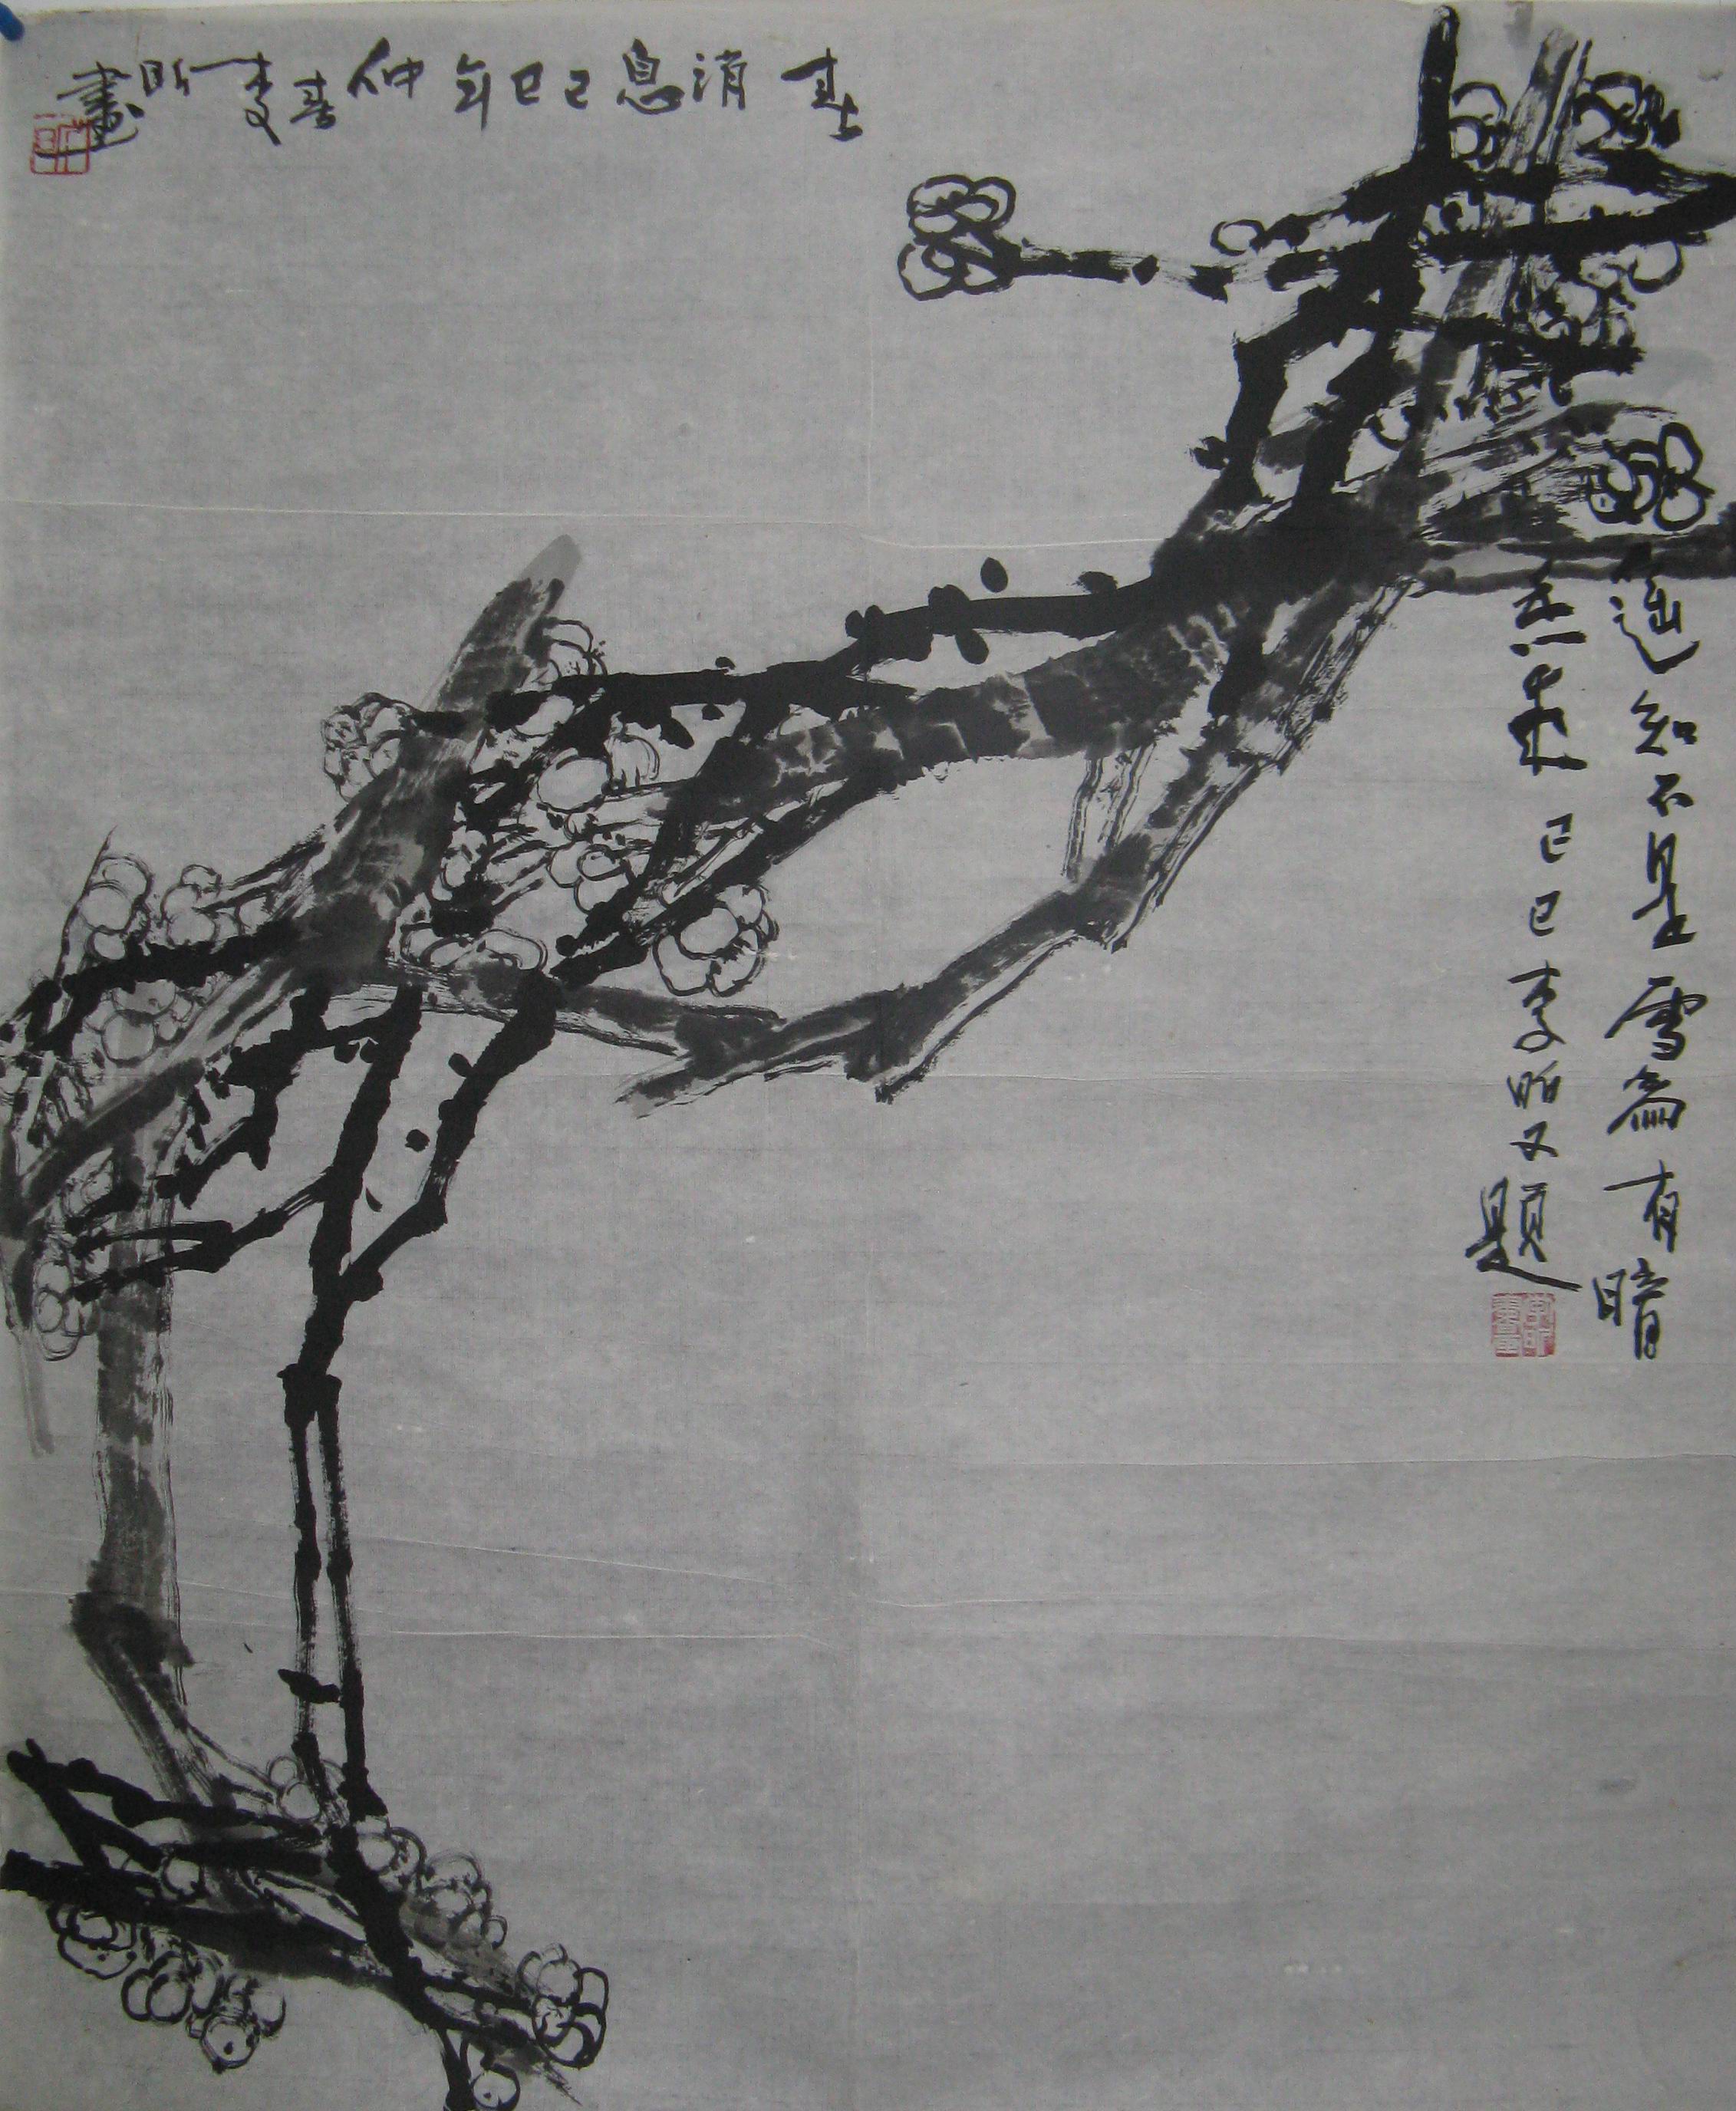 春消息己巳年仲春李昕畫
遥知不是雪為有暗
香來 己巳李昕又題